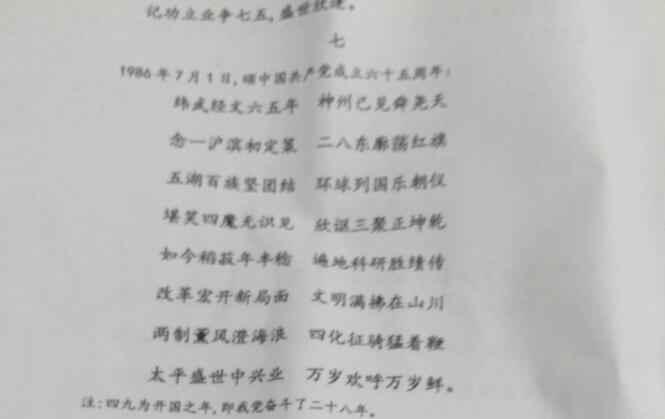 记功立业争七五，盛世欣逢。
七
1986年7月1日，颂中国共产党成立六十五周年：
纬武经文六五年 神州已见舜尧天
念一沪滨初定策 二八东廓荡红旗
五湖百族坚团结 环球列国乐朝仪
堪笑四魔无识见 欣讴三聚正坤乾
如今稻菽年丰稔 遍地科研胜绩传
改革宏开新局面 文明满拂在山川
两制薰风澄海浪 四化征骑猛着鞭
太平盛世中兴业 万岁欢呼万岁鲜。
注：四九为开国之年，即我党奋斗了二十八年。